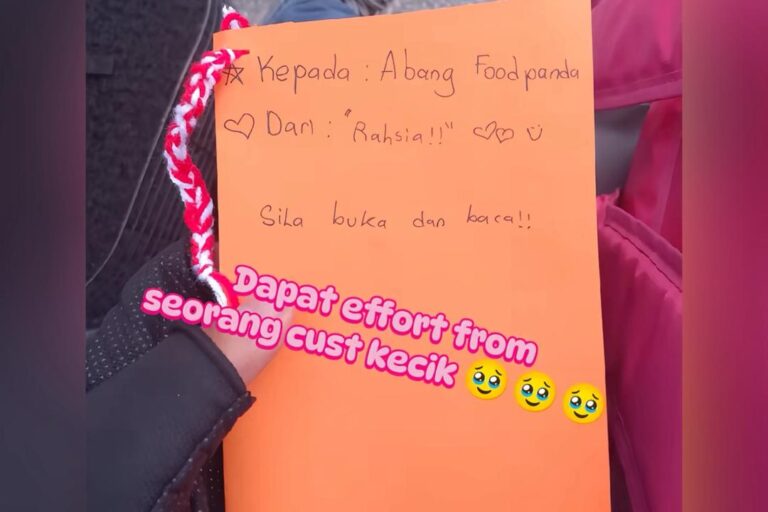 Kepada : Abang Foodpanda
Dari : "Rahsia!!"
Sila buka dan baca!!
Dapat effort from
seorang cust kecik 🥹🥹🥹